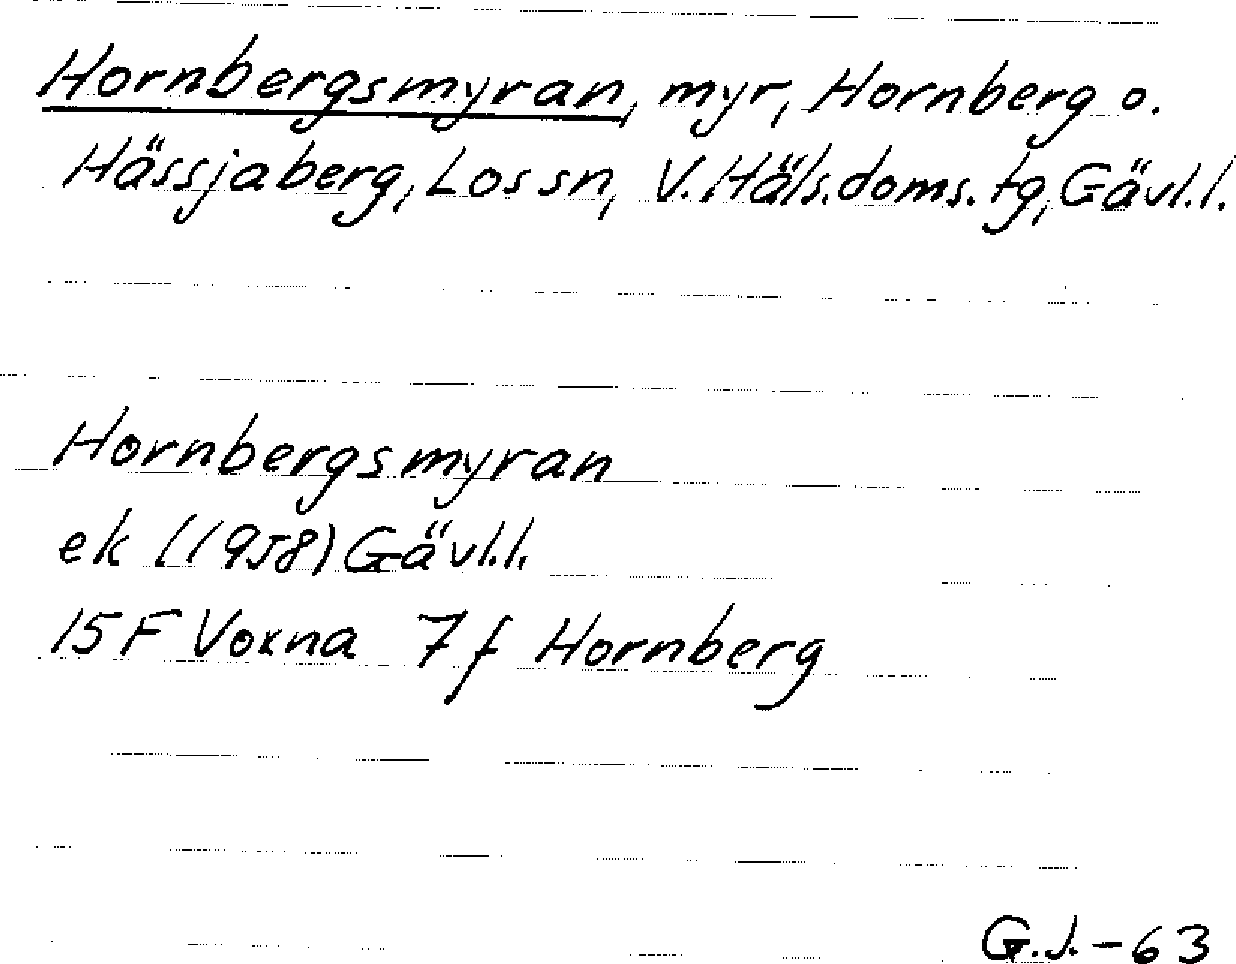 Hornbergsmyran, myr, Hornberg o.
Hässjaberg, Los sn, V. Häls. doms. tg, Gävl.l.
Hornbergsmyran
ek (1958) Gävl.l.
15F Voxna 7f Hornberg
G.J.-63